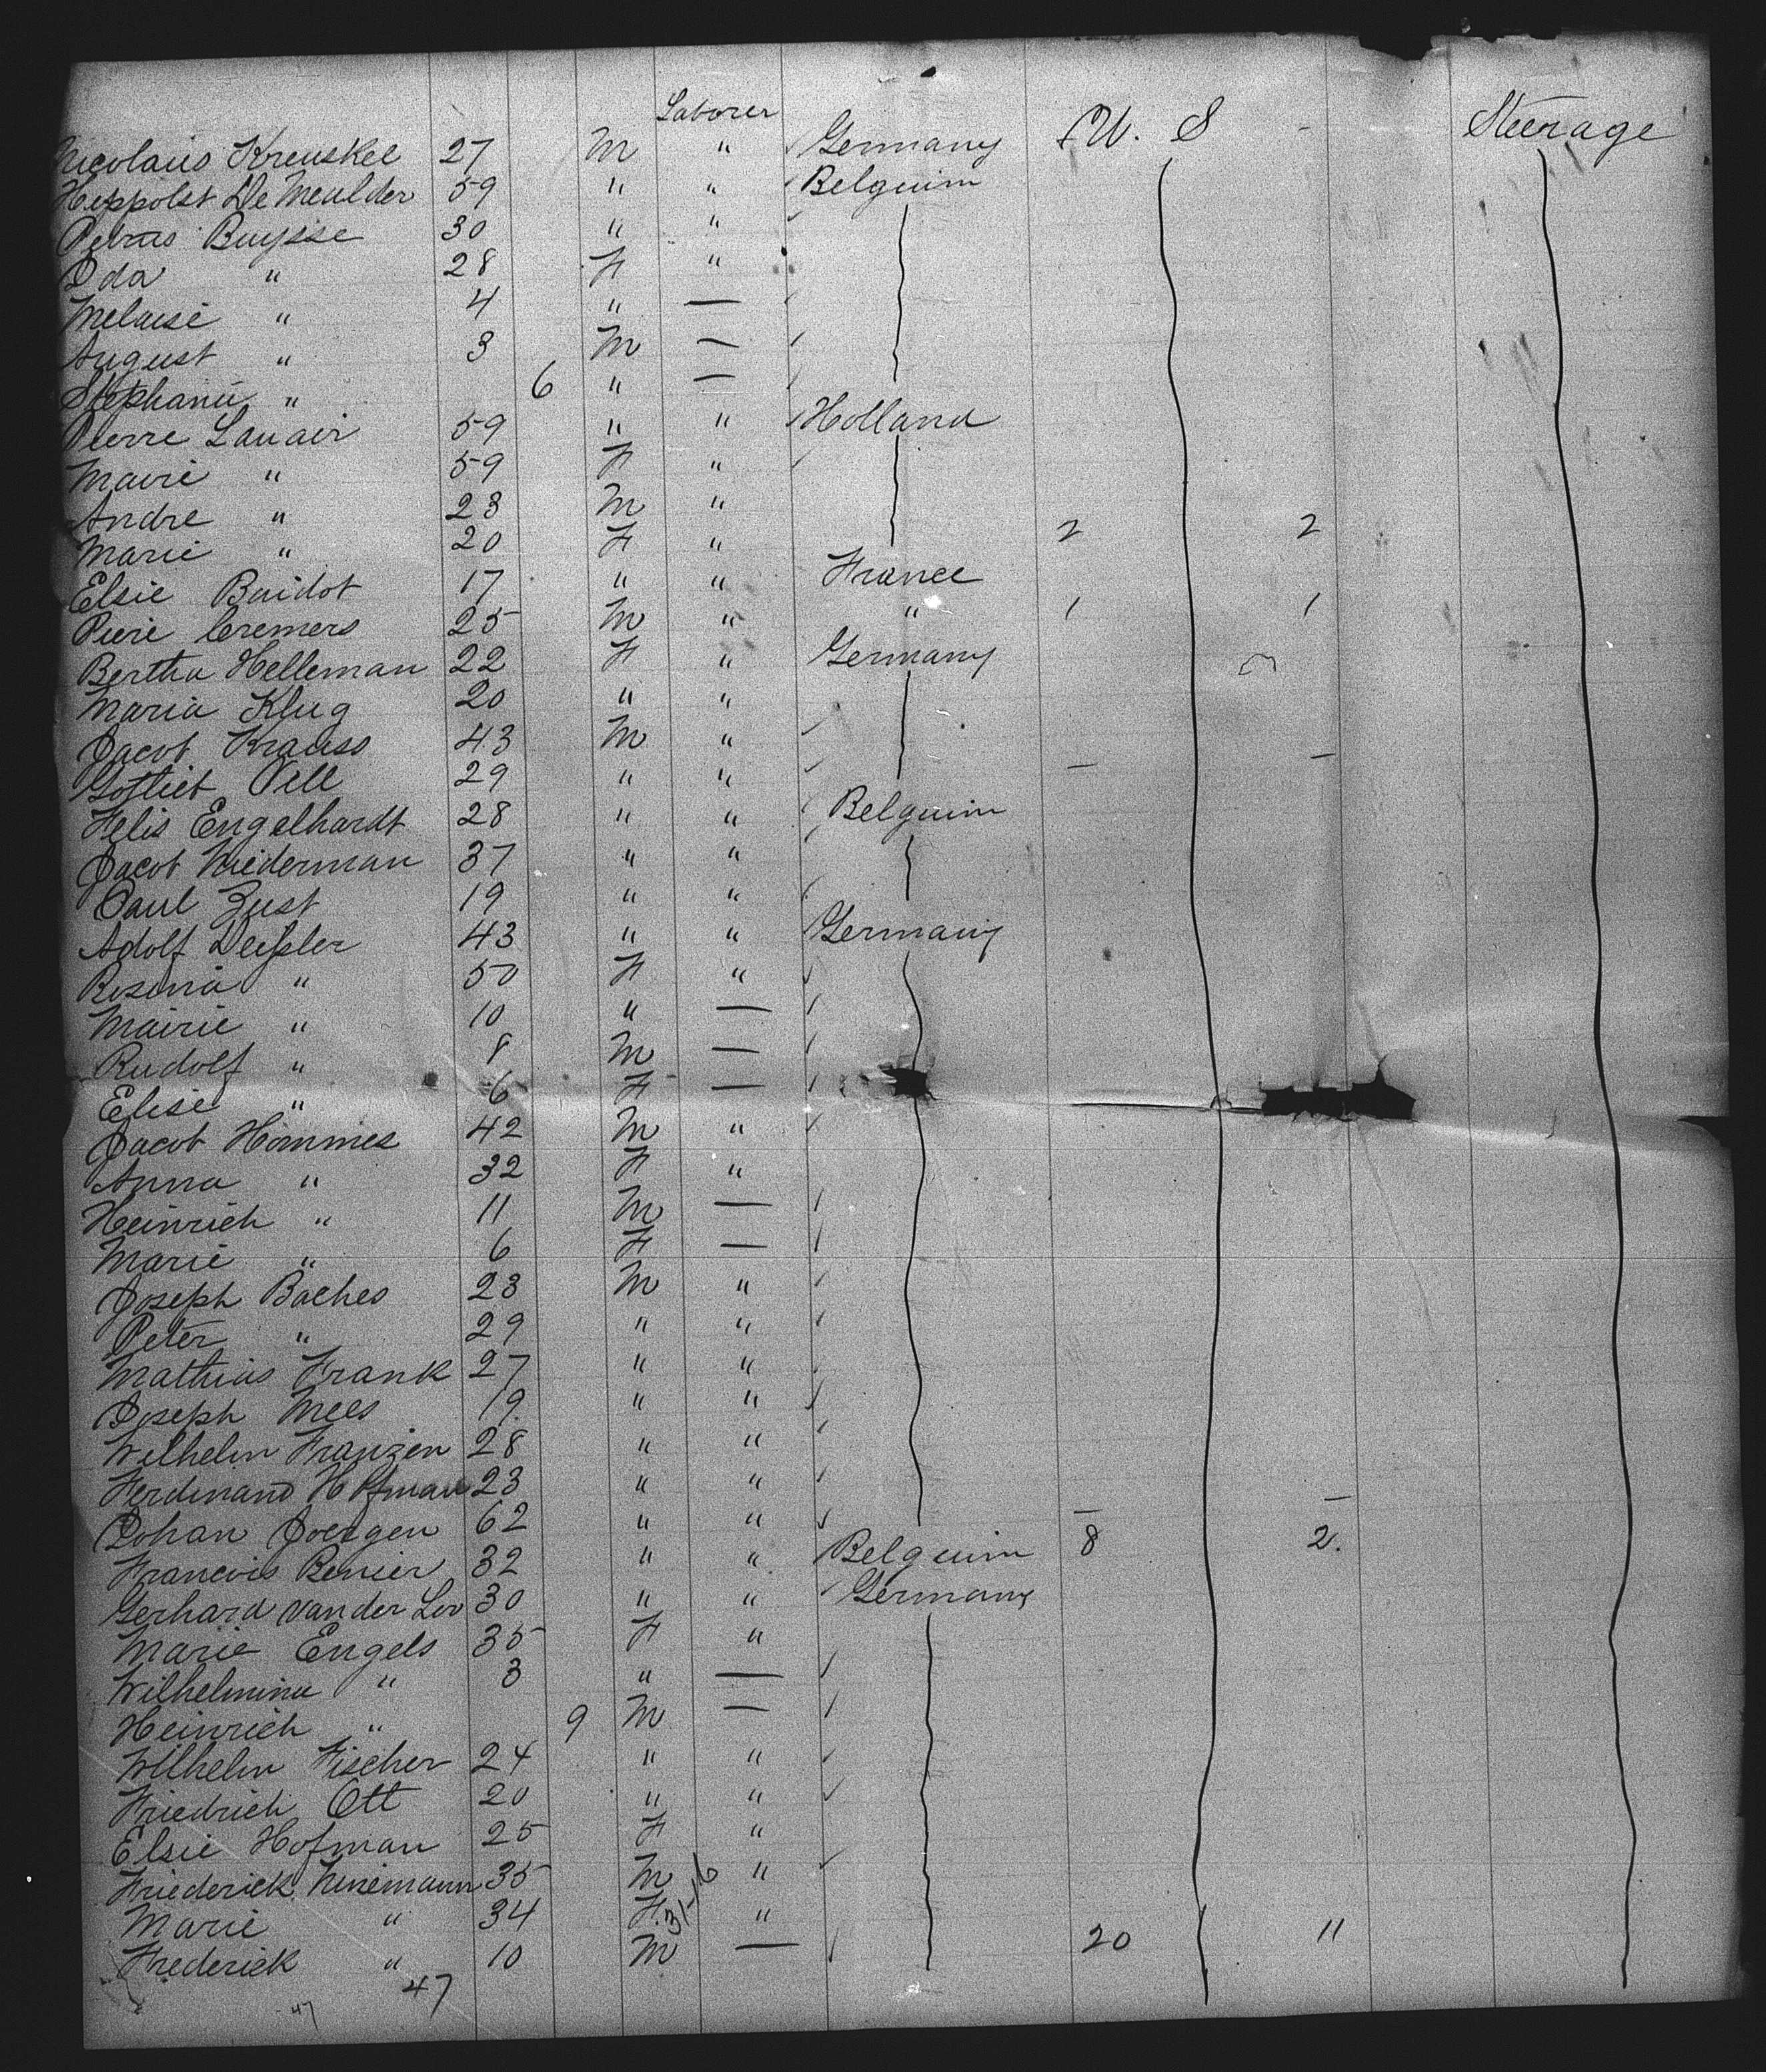 Laborer
Nicolaus Kreuskel 27 M " Germany U. S Steerage
Heppolst De Meulder 59 " " Belguim
Petrus Buysse 30 " "
Oda " 28 F "
Melaisé " 4 " —
August " 3 M —
Stephanii " 6 " —
Pierre Lauair 59 " " Holland
Mairie " 59 F "
Andre " 23 M "
Marie " 20 F " 2 2
Elsie Baidot 17 " " France
Piere Cremers 25 M " " 1 1
Bertha Helleman 22 F " Germany
Maria Klug 20 " "
Jacob Krauss 43 M "
Gottlieb Pell 29 " " — —
Felis Engelhardt 28 " " Belguim
Jacob Niederman 37 " "
Paul Zust 19 " "
Adolf Deissler 43 " " Germany
Rosina " 50 F "
Mairie " 10 " —
Rudolf " 8 M —
Elise " 6 F —
Jacob Hommes 42 M "
Anna " 32 F "
Heinrich " 11 M —
Marie " 6 F —
Joseph Baches 23 M "
Peter " 29 " "
Mathias Frank 27 " "
Joseph Mees 19 " "
Wilhelm Franzen 28 " "
Ferdinand Hofman 23 " "
Johan Joergen 62 " " — —
Francois Renier 32 " " Belguim 8 2.
Gerhard van der Loo 30 " " Germany
Marie Engels 35 F "
Wilhelmina " 3 " —
Heinrich " 9 M —
Wilhelm Fischer 24 " "
Friedrich Ott 20 " "
Elsie Hofman 25 F "
Friederick Niniemann 35 M "
Marie " 34 F. 31-16 "
Frederick " 10 M — 20 11
47
47